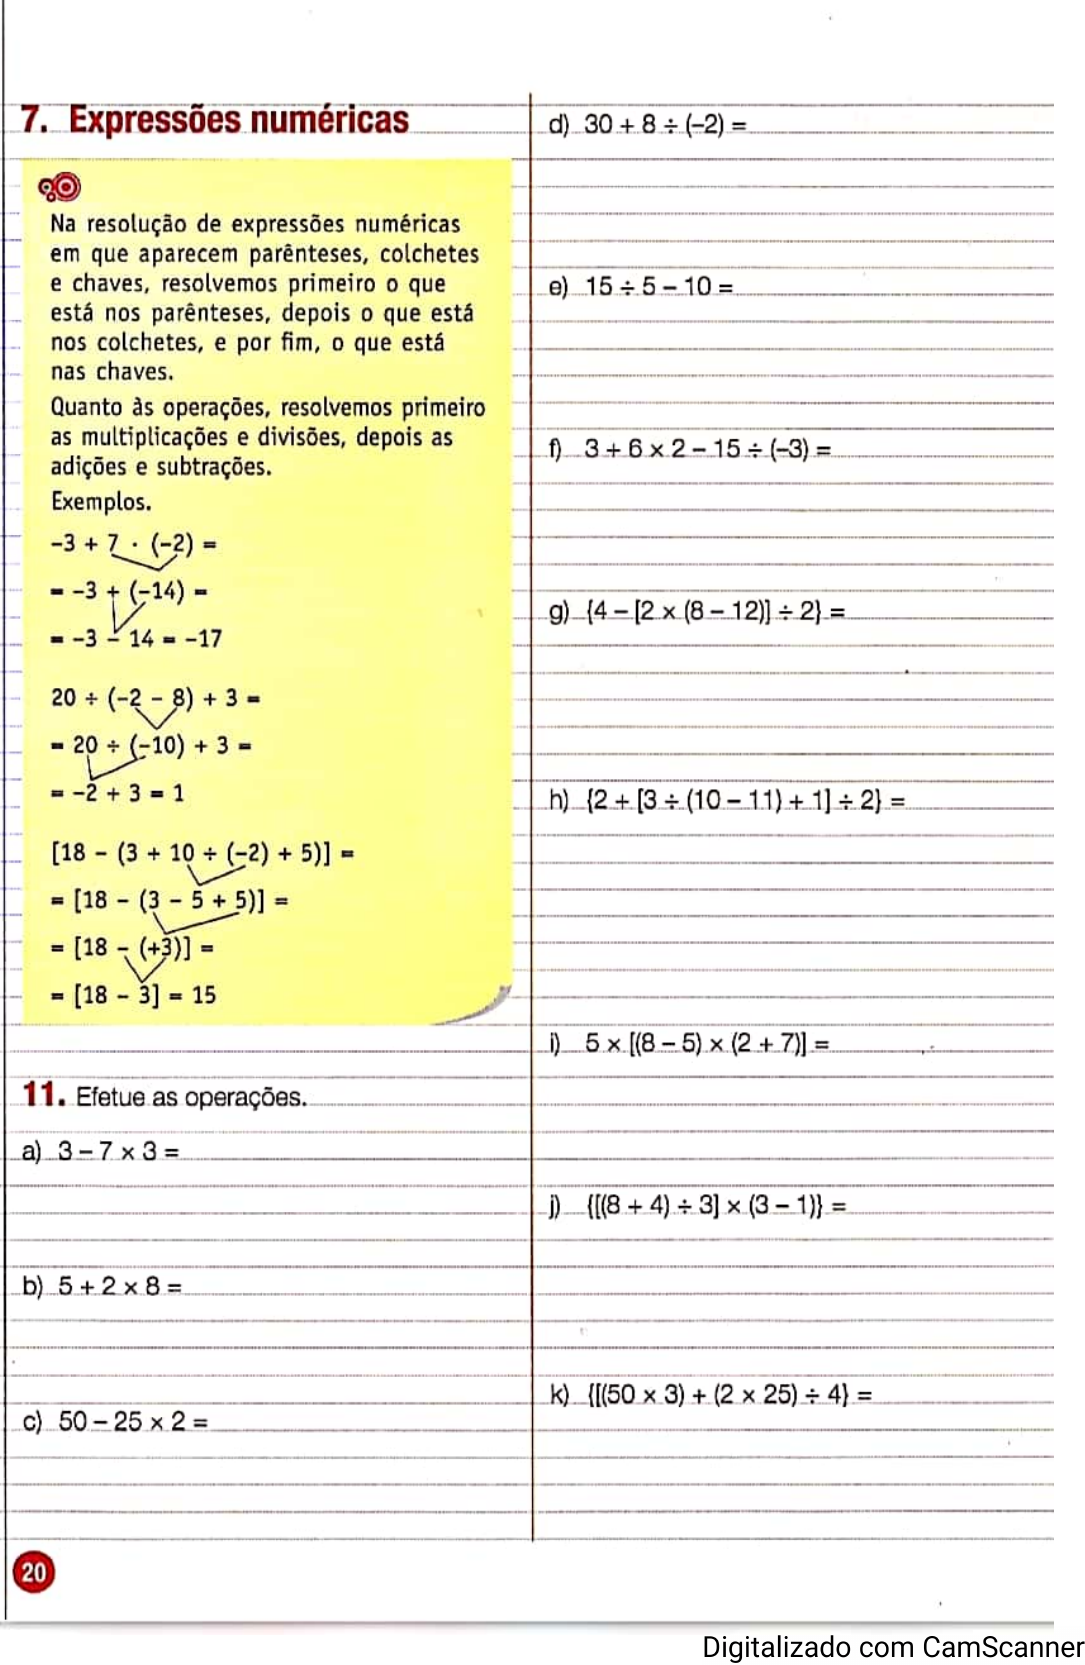 7. Expressões numéricas
Na resolução de expressões numéricas
em que aparecem parênteses, colchetes
e chaves, resolvemos primeiro o que
está nos parênteses, depois o que está
nos colchetes, e por fim, o que está
nas chaves.
Quanto às operações, resolvemos primeiro
as multiplicações e divisões, depois as
adições e subtrações.
Exemplos.
–3 + 7 · (–2) =
= –3 + (–14) =
= –3 – 14 = –17
20 ÷ (–2 – 8) + 3 =
= 20 ÷ (–10) + 3 =
= –2 + 3 = 1
[18 – (3 + 10 ÷ (–2) + 5)] =
= [18 – (3 – 5 + 5)] =
= [18 – (+3)] =
= [18 – 3] = 15
11. Efetue as operações.
a) 3 – 7 × 3 =
b) 5 + 2 × 8 =
c) 50 – 25 × 2 =
d) 30 + 8 ÷ (–2) =
e) 15 ÷ 5 – 10 =
f) 3 + 6 × 2 – 15 ÷ (–3) =
g) {4 – [2 × (8 – 12)] ÷ 2} =
h) {2 + [3 ÷ (10 – 11) + 1] ÷ 2} =
i) 5 × [(8 – 5) × (2 + 7)] =
j) {[(8 + 4) ÷ 3] × (3 – 1)} =
k) {[(50 × 3) + (2 × 25) ÷ 4} =
20
Digitalizado com CamScanner